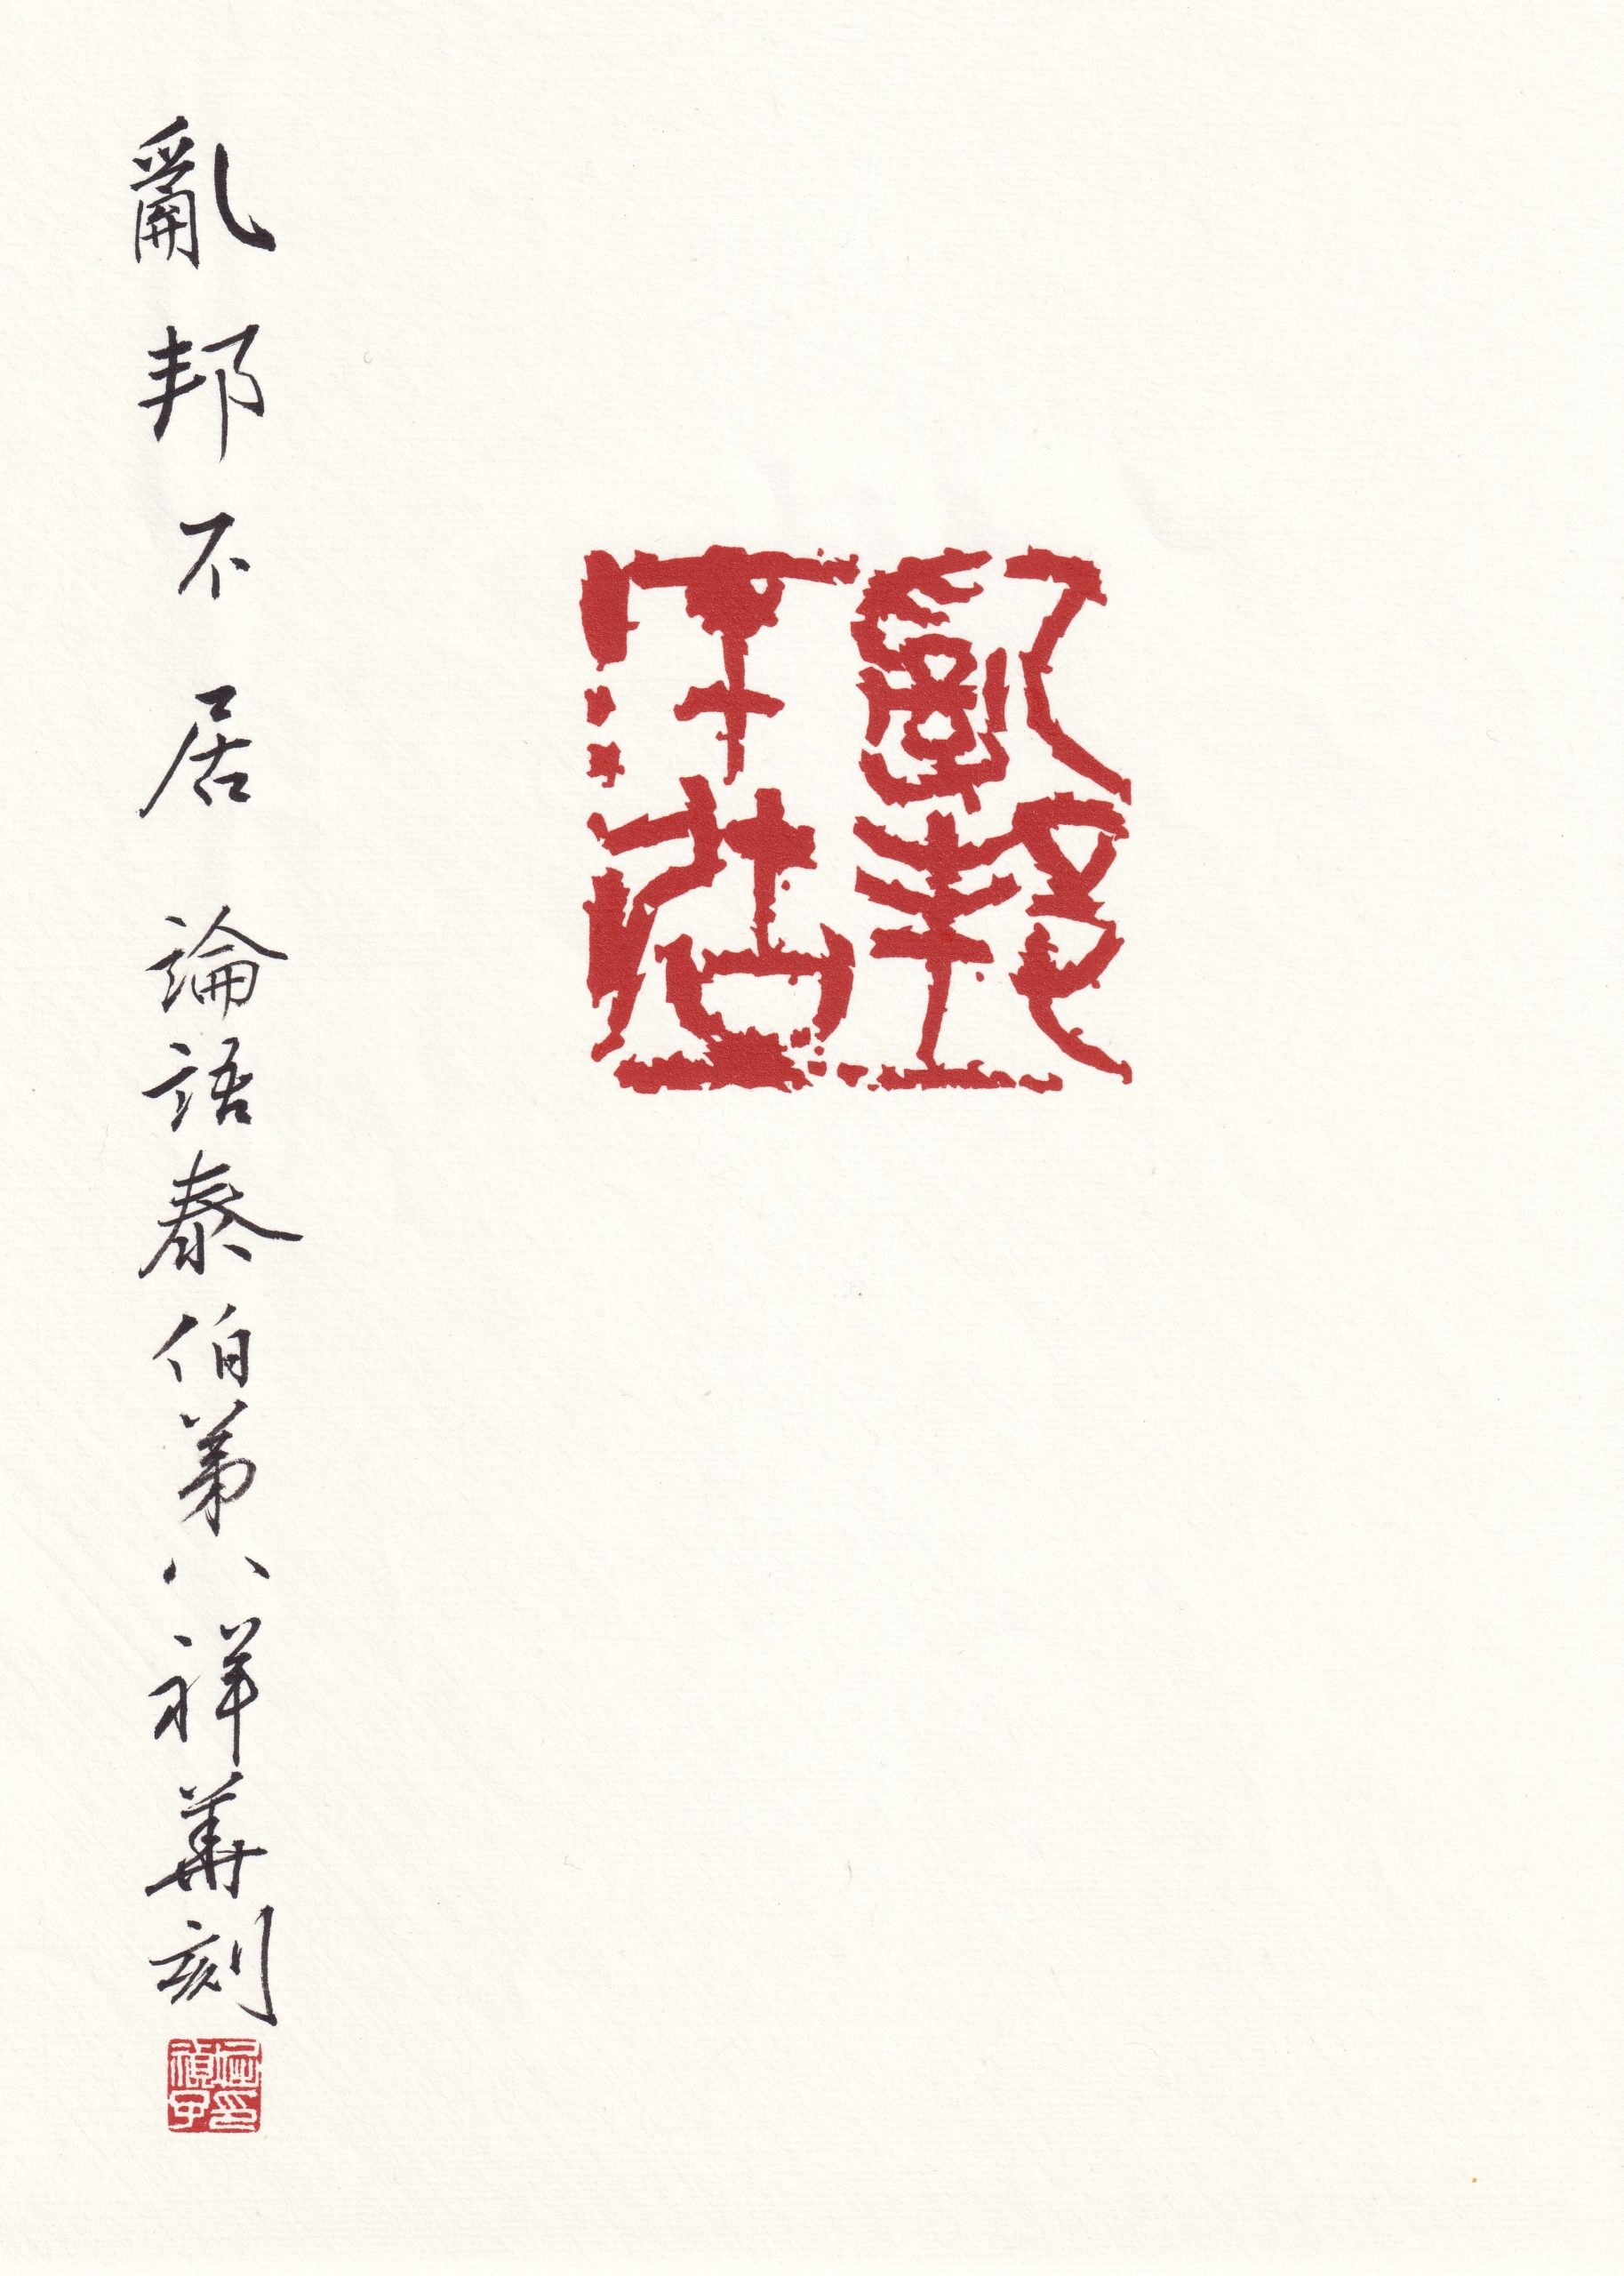 亂邦
不居
亂邦不居 論語泰伯第八祥華刻